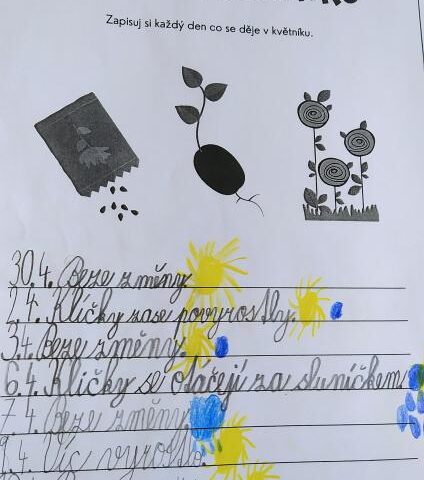 Zapisuj si každý den co se děje v květníku.
30.4. Beze změny.
2.4. Klíčky zase povyrostly.
3.4. Beze změny.
6.4. Klíčky se otáčejí za sluníčkem
7.4. Beze změny
9.4. Víc vyrostlo.